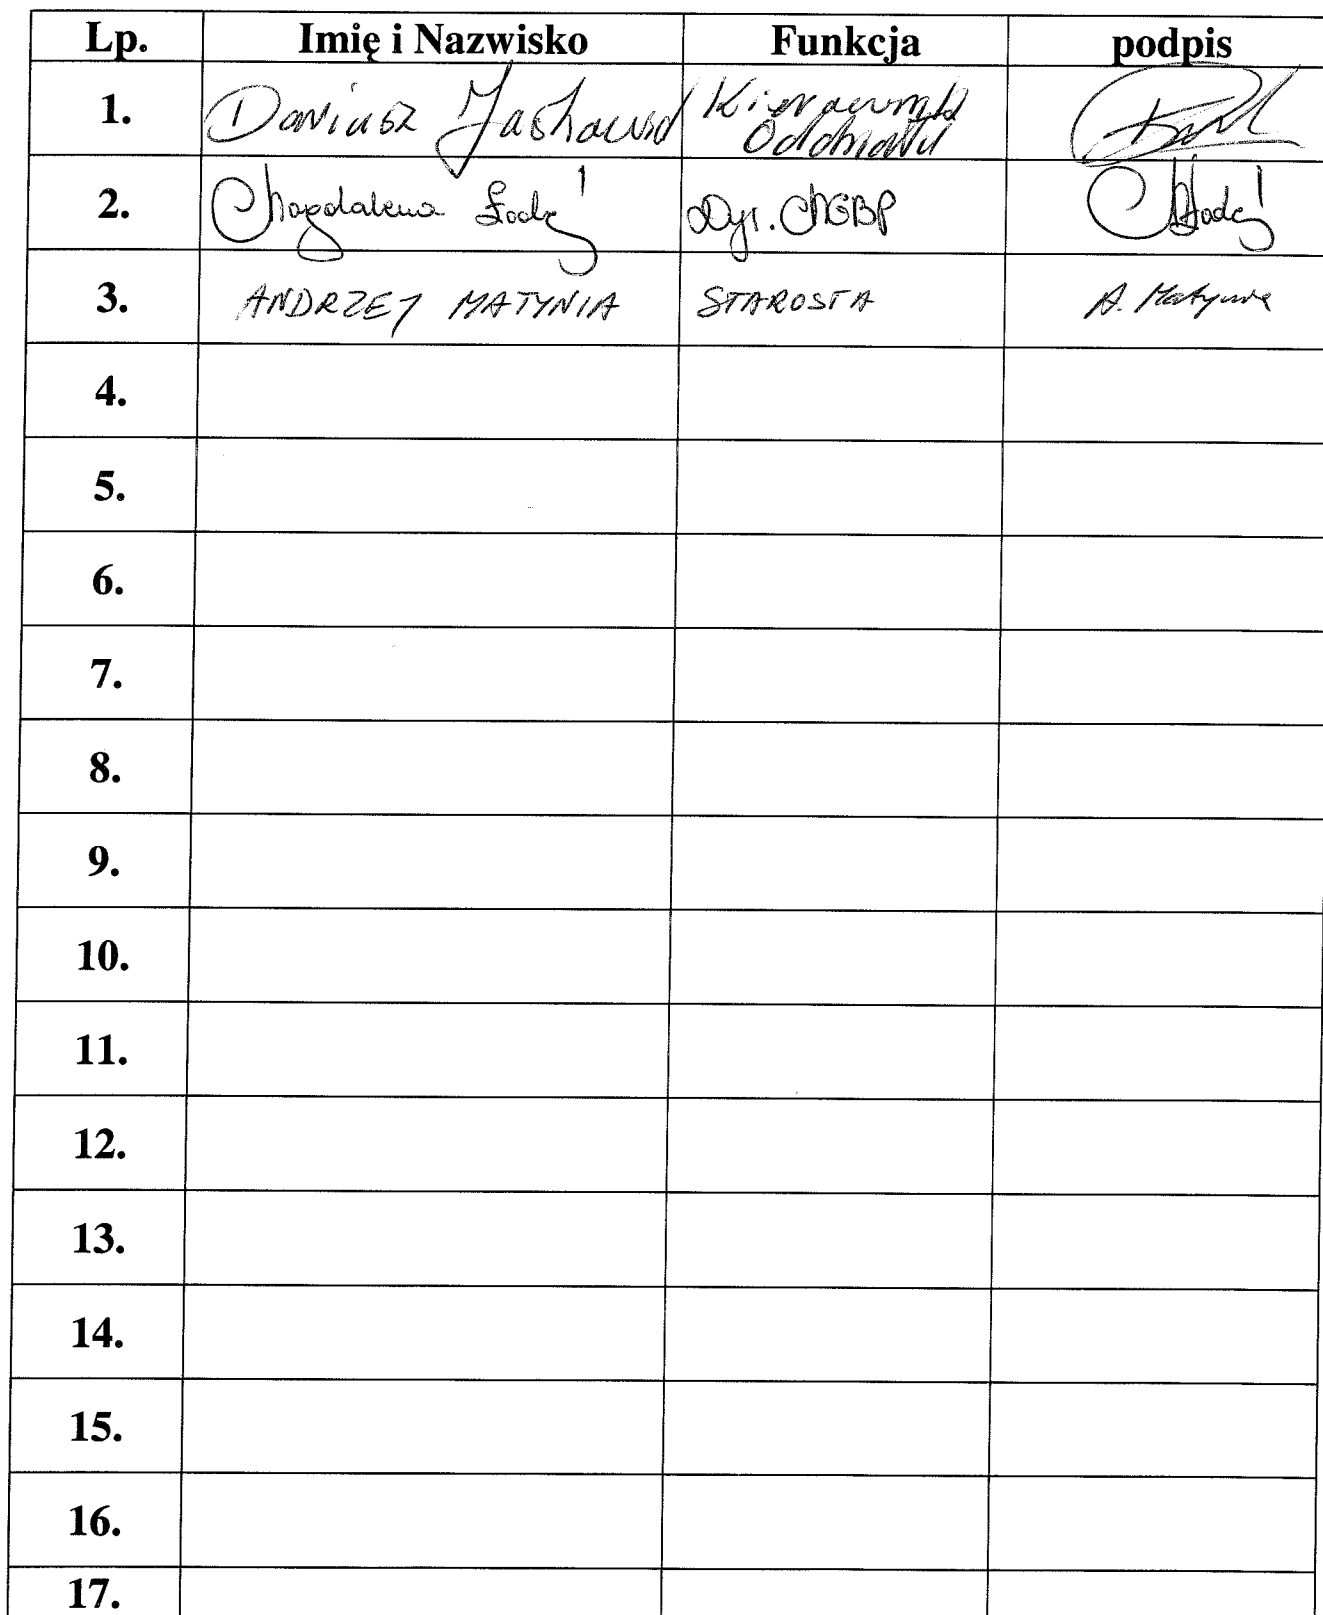 Lp. Imię i Nazwisko Funkcja podpis
1. Dariusz Kierownik
Oddziału
2. Magdalena Łodej Dyr. MGBP MŁodej
3. ANDRZEJ MATYNIA STAROSTA A. Matynia
4.
5.
6.
7.
8.
9.
10.
11.
12.
13.
14.
15.
16.
17.